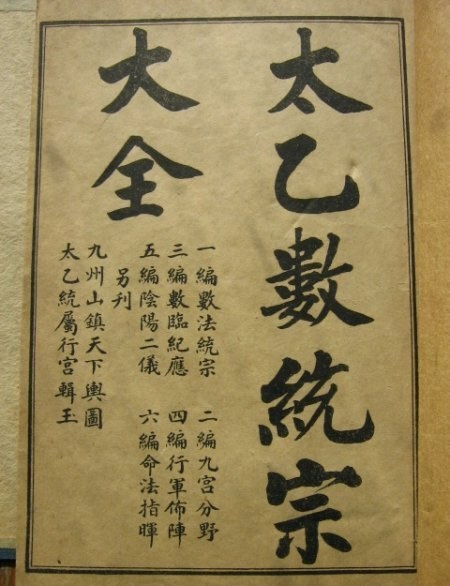 太乙數統宗
大全
一編數法統宗　二編九宮分野
三編數臨紀應　四編行軍佈陣
五編陰陽二儀　六編命法指暉
另刊
九州山鎮天下輿圖
太乙統屬行宮輯玉